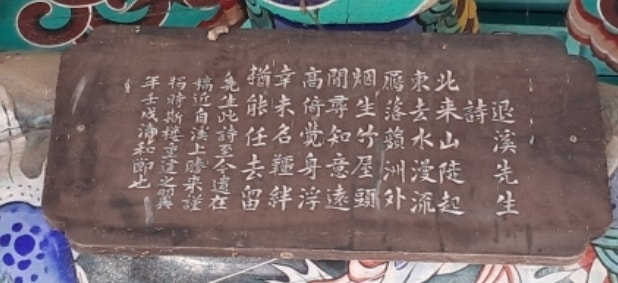 退溪先生
詩
北来山陡起
東去水漫流
鴈落蘋洲外
烟生竹屋頭
閒尋知意遠
高倚覺身浮
幸未名韁絆
猶能任去留
先生此詩至今遺在
稿近自溪上謄来謹
揭時斯樓重建之
年壬戌清和節也